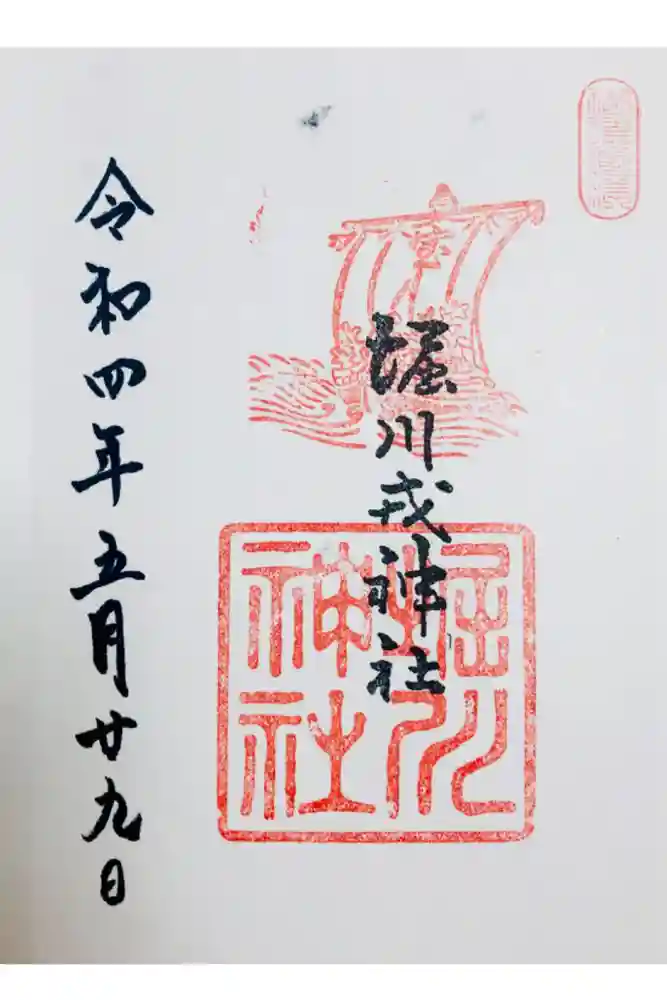 堀川戎神社
堀川
神社
宝
令和四年五月廿九日